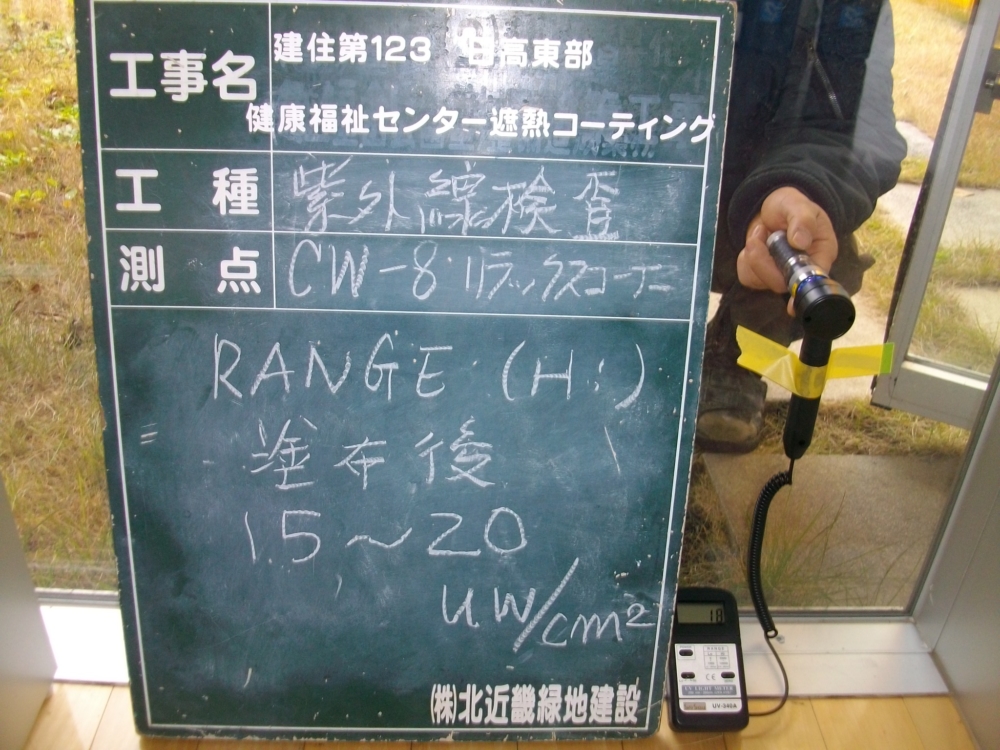 工事名
建住第123 日高東部
健康福祉センター遮熱コーティング
工種 紫外線検査
測点 CW-8 リラックスコーナー
RANGE (Hi)
塗布後
15～20
uW/cm²
(株)北近畿緑地建設
18
UV-340A